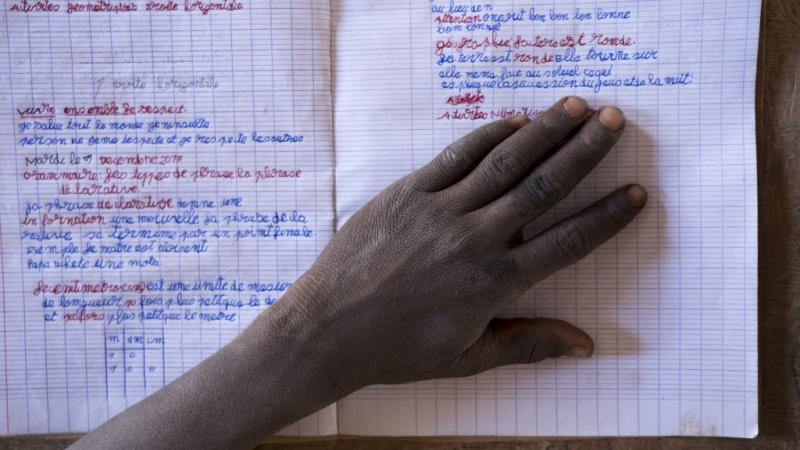 Activites geometriques droite horizontale
droite horizontale
vivre ensemble le respect
je salue tout le monde je ninsulte
person ne jeme respecte et je respecte les autres
Mardi le Decembre 2017
Grammaire: Les types de phrase la phrase
declarative.
la phrase declarative donne une
information une nouvelle la phrase decla
rative se termime par un point finale
Exemple le maitre est absent
Papa achete une moto
Le centimetre (cm) est une unite de mesure
de longueur fois plus petit que le
et fois plus petit que le metre
m dm cm
1 0
1 0 0
au lieu de n
Attention on ecrit bon bon bon bonne
bom bonne
geographie la terre est ronde.
La terre est ronde elle tourne sur
elle meme face au soleil ceci
explique la succession du jour et de la nuit
Activites